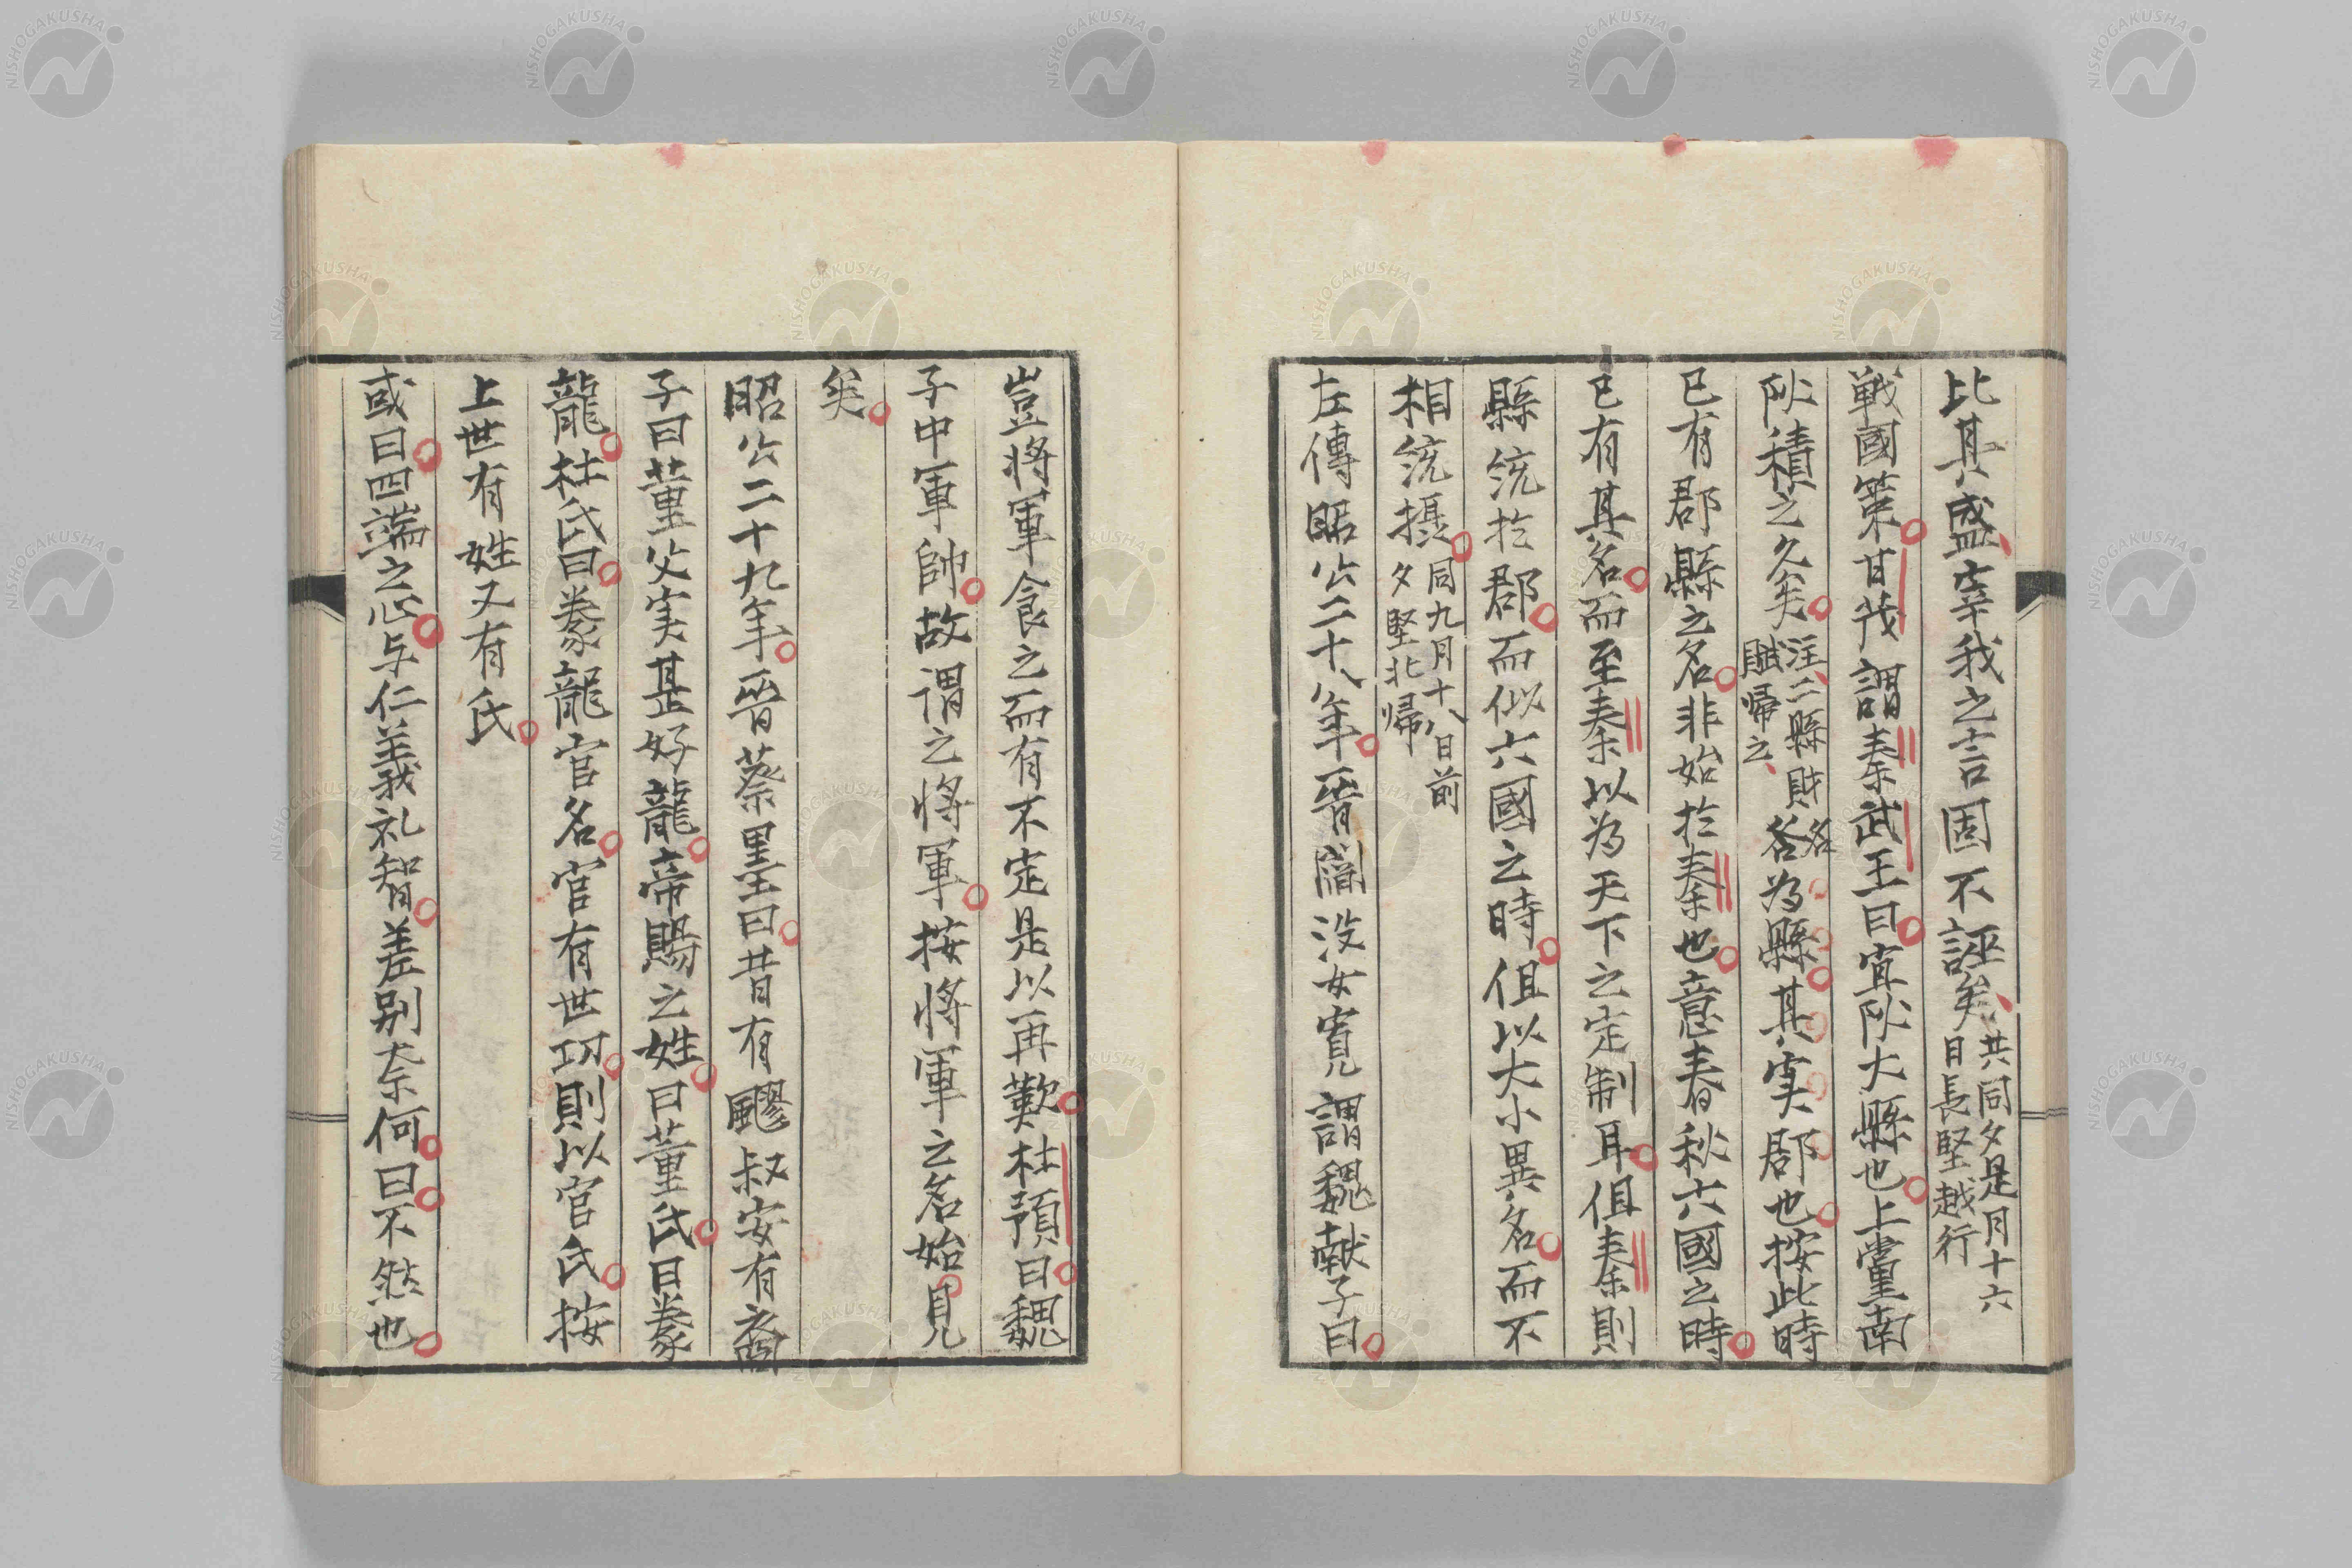 比其盛宰我之言固不誣矣共同夕是月十六
日長堅越行
戦國策甘茂謂秦武王曰宜阦大縣也上黨南
阦積之久矣注二縣財
賦帰之名為縣其実郡也按此時
已有郡縣之名非始於秦也意春秋六國之時
已有其名而至秦以為天下之定制耳但秦則
縣統於郡而似六國之時但以大小異名而不
相統摂同九月十八日前
夕堅北帰
左傳昭公二十八年晉閻没女寛謂魏献子曰
豈将軍食之而有不定是以再歎杜預曰魏
子中軍帥故謂之将軍按将軍之名始見
矣
昭公二十九年晉蔡墨曰昔有飂叔安有裔
子曰董父実甚好龍帝賜之姓曰董氏曰豢
龍杜氏曰豢龍官名官有世功則以官氏按
上世有姓又有氏
或曰四端之心与仁義礼智差別奈何曰不然也
NISHOGAKUSHA